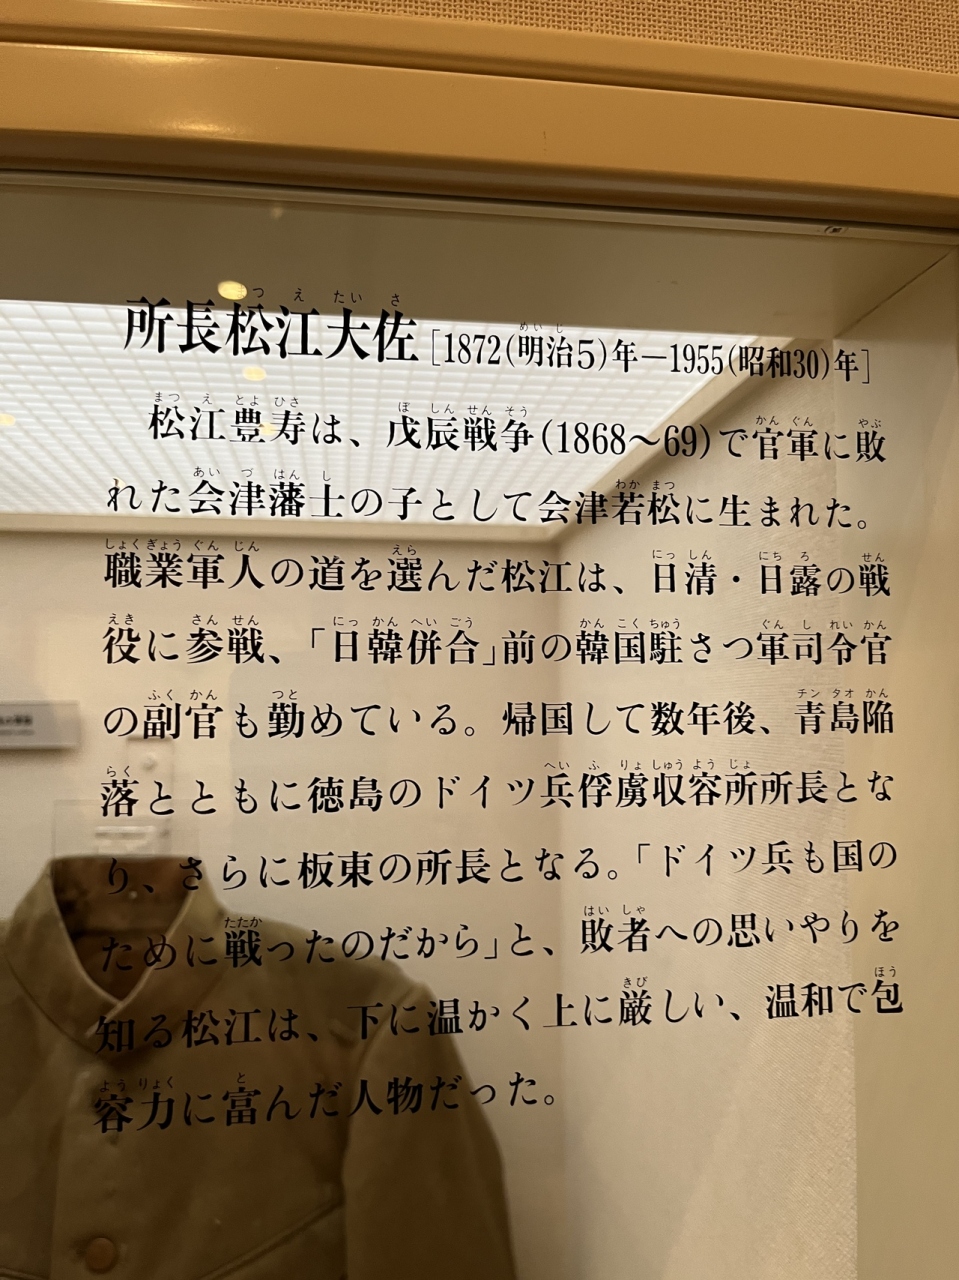 所長松江大佐[1872(明治5)年—1955(昭和30)年]
松江豊寿は、戊辰戦争(1868〜69)で官軍に敗
れた会津藩士の子として会津若松に生まれた。
職業軍人の道を選んだ松江は、日清・日露の戦
役に参戦、「日韓併合」前の韓国駐さつ軍司令官
の副官も勤めている。帰国して数年後、青島陥
落とともに徳島のドイツ兵俘虜収容所所長とな
り、さらに板東の所長となる。「ドイツ兵も国の
ために戦ったのだから」と、敗者への思いやりを
知る松江は、下に温かく上に厳しい、温和で包
容力に富んだ人物だった。